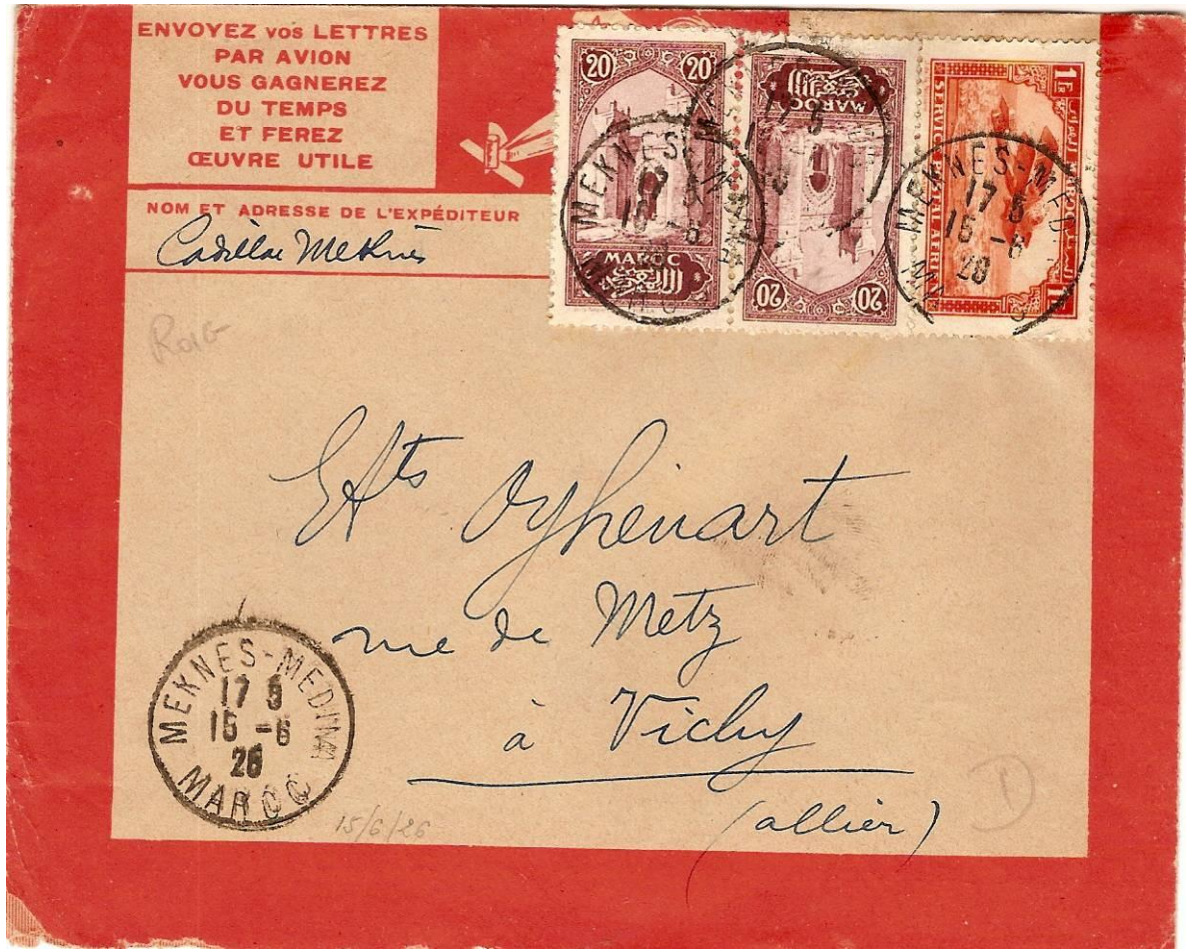 ENVOYEZ vos LETTRES
PAR AVION
VOUS GAGNEREZ
DU TEMPS
ET FEREZ
ŒUVRE UTILE
NOM ET ADRESSE DE L'EXPÉDITEUR
Cadillac Meknès
20 20
MAROC
MAROC
20 20
1 FR
SERVICE POSTAL AERIEN
MAROC
1 FR
MEKNES-MEDINA
17 5
15 -6
26
MAROC
17 5
MEKNES-MED
17 5
15 -6
26
Roig
Ets Oyhénart
rue de Metz
à Vichy
(allier)
MEKNES-MEDINA
17 5
15 -6
26
MAROC
15/6/26
D